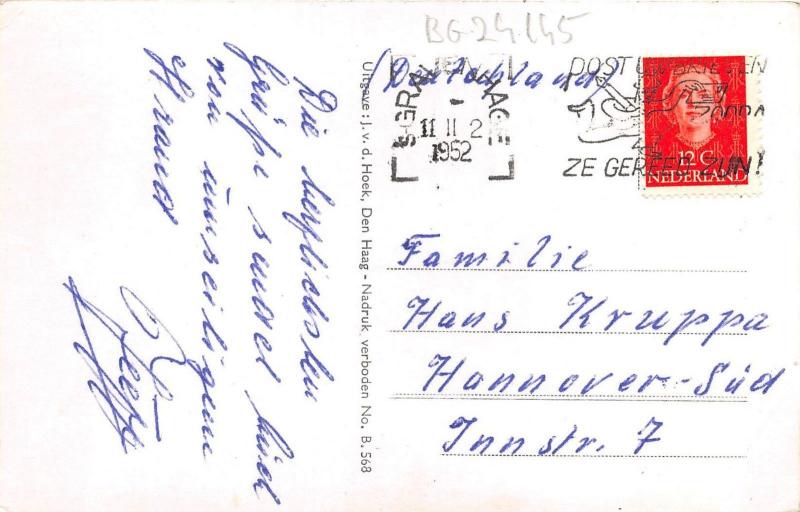 BG 24145
Die herzlichsten
Grüße sendet Euch
vom
Strand
Uitgave: J. v. d. Hoek, Den Haag - Nadruk verboden No. B. 568
(Deutschland)
'S-GRAVENHAGE
11 II 2
1952
POST UW BRIEVEN
ZE GEREED ZIJN!
12 C
NEDERLAND
Familie
Hans Kruppa
Hannover-Süd
Innstr. 7